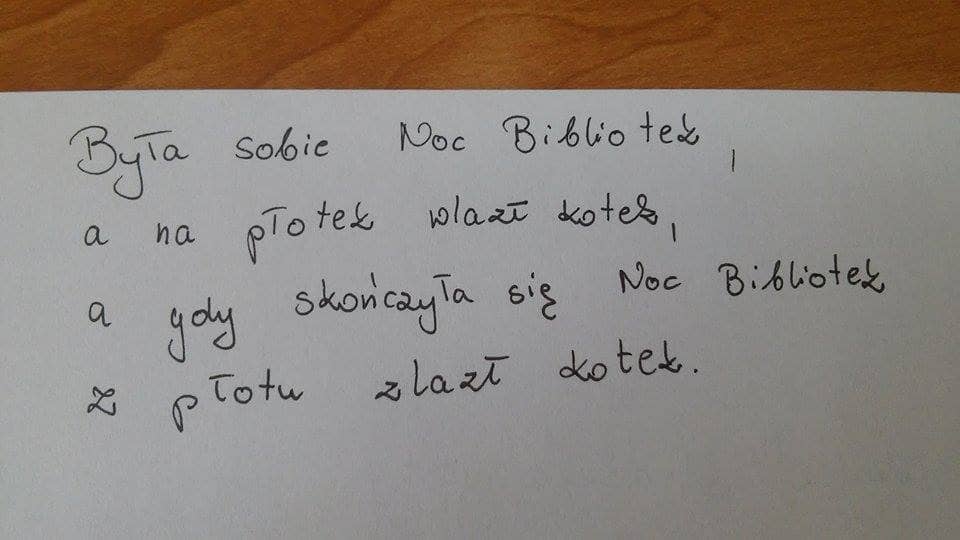 Była sobie Noc Bibliotek,
a na płotek wlazł kotek,
a gdy skończyła się Noc Bibliotek
z płotu zlazł kotek.